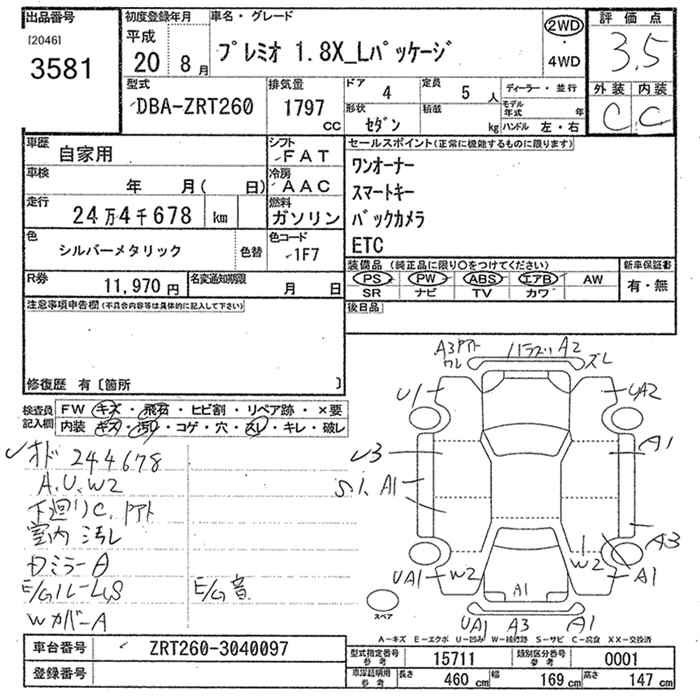 出品番号
[2046]
3581
初度登録年月
平成
20 年 8 月
車名・グレード
プレミオ 1.8X_Lパッケージ
2WD
・
4WD
評価点
3.5
外装 内装
C C
型式
DBA-ZRT260
排気量
1797
CC
ドア 4
定員 5 人
形状
セダン
積載
kg
ディーラー・並行
モデル年式 年
ハンドル 左・右
車歴
自家用
シフト
FAT
車検
年 月( 日)
冷房
AAC
走行
24万4千678 km
燃料
ガソリン
色
シルバーメタリック
色替
色コード
1F7
R券
11,970 円
名変通知期限
月 日
セールスポイント(正常に機能するものに限ります)
ワンオーナー
スマートキー
バックカメラ
ETC
装備品 (純正品に限り〇をつけてください)
新車保証書
PS PW ABS エアB AW
有・無
SR ナビ TV カワ
後日品
注意事項申告欄(不具合内容等は具体的に記入して下さい)
修復歴 有〔箇所 〕
検査員
記入欄
FW キズ・飛石・ヒビ割・リペア跡・×要
内装 キズ・汚れ・コゲ・穴・スレ・キレ・破レ
オド 244678
A.U.W2
下廻りC.
室内 汚レ
ミラーA
E/G音
WカバーA
A3
ワレ
A2
ズレ
U1
UA2
U3
A1
S1. A1
A3
UA1
W2
W2
A1
A1
スペア
UA1 A3 A1
A-キズ E-エクボ U-凹み W-補修跡 S-サビ C-腐食 XX-交換済
車台番号
ZRT260-3040097
登録番号
型式指定番号
参考
15711
類別区分番号
参考
0001
車検証明用
参考
長さ 460 cm
幅 169 cm
高さ 147 cm